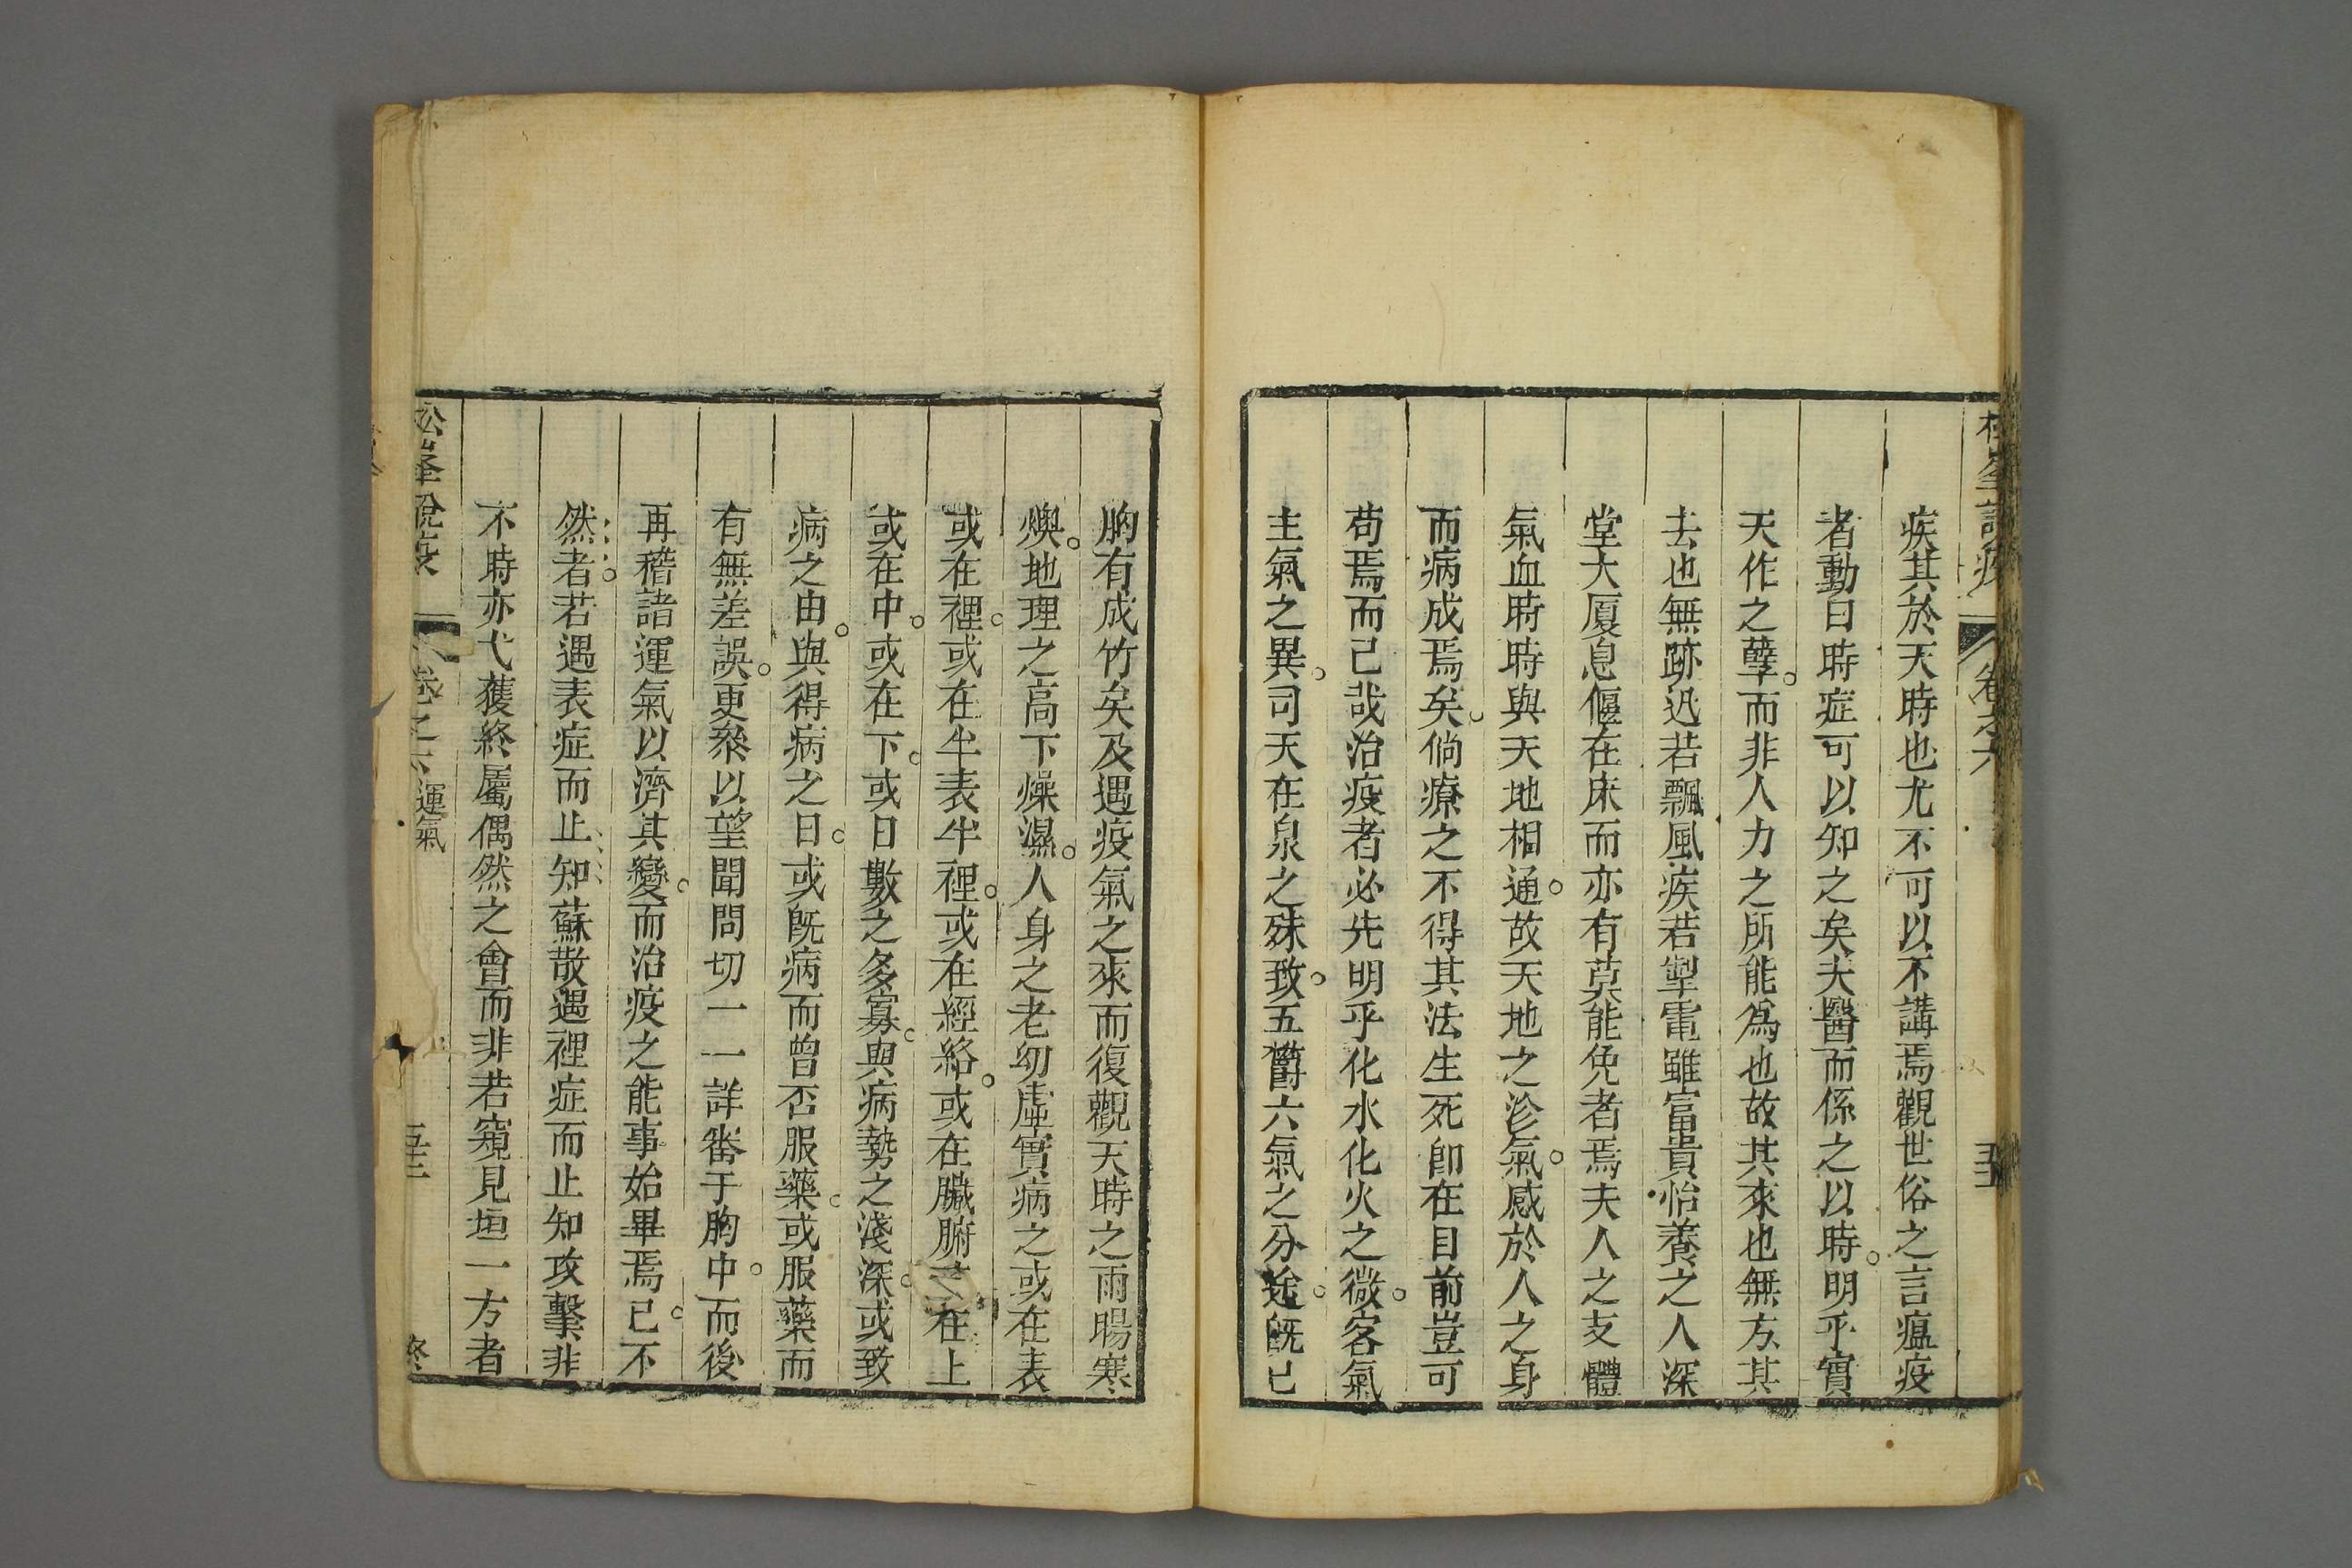 松峯說疫 卷之六 五十
疾其於天時也尤不可以不講焉觀世俗之言瘟疫
者動曰時症可以知之矣夫醫而係之以時。明乎實
天作之孽。而非人力之所能爲也故其來也無方其
去也無跡迅若飄風疾若掣電雖富貴怡養之人深
堂大厦息偃在床而亦有莫能免者焉夫人之支體
氣血時時與天地相通。故天地之沴氣。感於人之身
而病成焉矣。倘療之不得其法生死卽在目前豈可
苟焉而已哉治疫者必先明乎化水化火之微。客氣
主氣之異。司天在泉之殊致。五欝六氣之分途。旣已
胸有成竹矣及遇疫氣之來而復觀天時之雨暘寒
燠。地理之高下燥濕。人身之老幼虛實病之或在表
或在裡。或在半表半裡。或在經絡。或在臟腑或在上
或在中。或在下。或日數之多寡。與病勢之淺深。或致
病之由。與得病之日。或旣病而曾否服藥。或服藥而
有無差誤。更叅以望聞問切一一詳審于胸中。而後
再稽諸運氣以濟其變。而治疫之能事始畢焉已。不
然者。若遇表症而止知蘇散遇裡症而止知攻擊非
不時亦弋獲終屬偶然之會而非若窺見垣一方者
松峯說疫 卷之六運氣 終